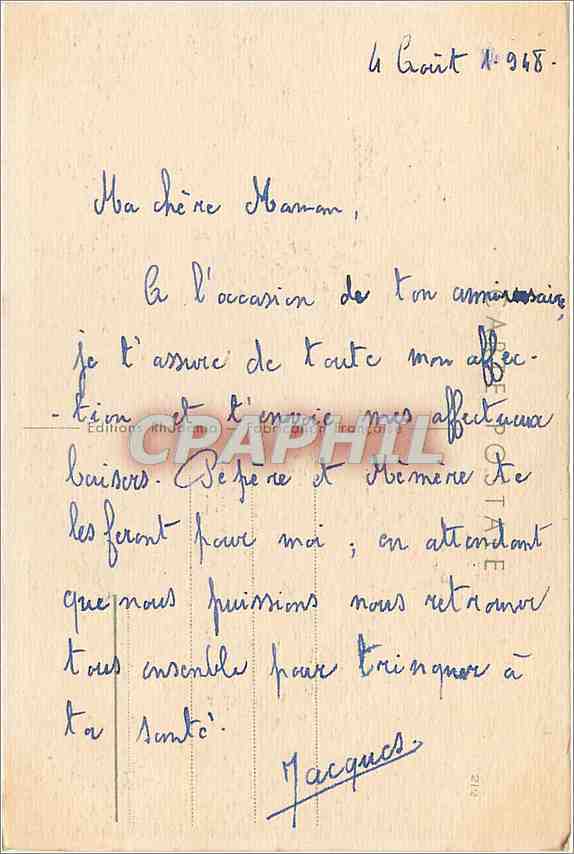 4 Août 1.948.
Ma chère Maman,
A l'occasion de ton anniversaire,
je t'assure de toute mon affec-
-tion et t'envoie mes affectueux
baisers. Pépère et Mémère te
les feront pour moi ; en attendant
que nous puissions nous retrouver
tous ensemble pour trinquer à
ta santé.
Jacques.
CARTE POSTALE
Editions Rhodania
Fabrication française
CPARAPHIL
212